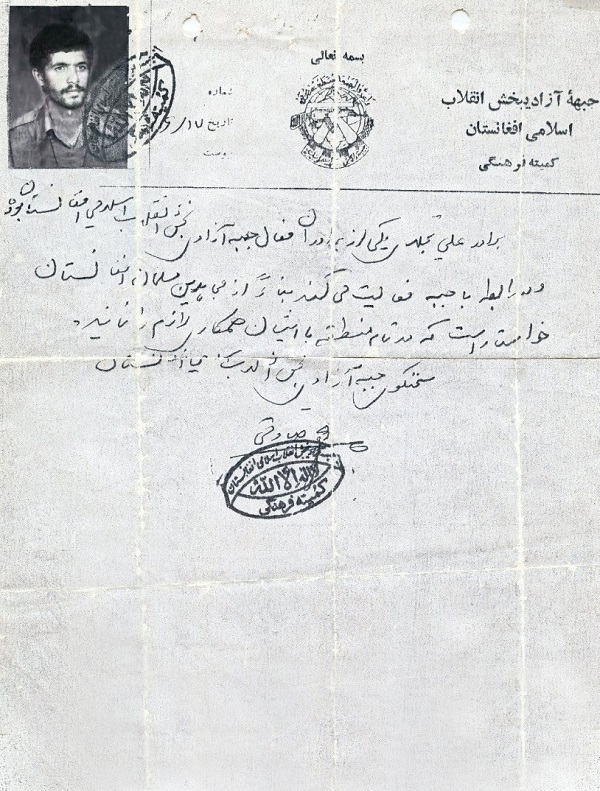 بسمه تعالی
جبههٔ آزادیبخش انقلاب
اسلامی افغانستان
کمیته فرهنگی
شماره
تاریخ ۱۷/
پیوست
برادر علی یکی از برادران فعال جبهه آزادی بخش انقلاب اسلامی افغانستان بوده
و در رابطه با جبهه فعالیت می‌کند بناءً از مجاهدین مسلمان افغانستان
خواستار است که در تمام منطقه با ایشان همکاری لازم را نمایند.
سخنگوی جبهه آزادی بخش افغانستان
صادقی
آزادیبخش انقلاب اسلامی افغانستان
لا اله الا الله
کمیته فرهنگی